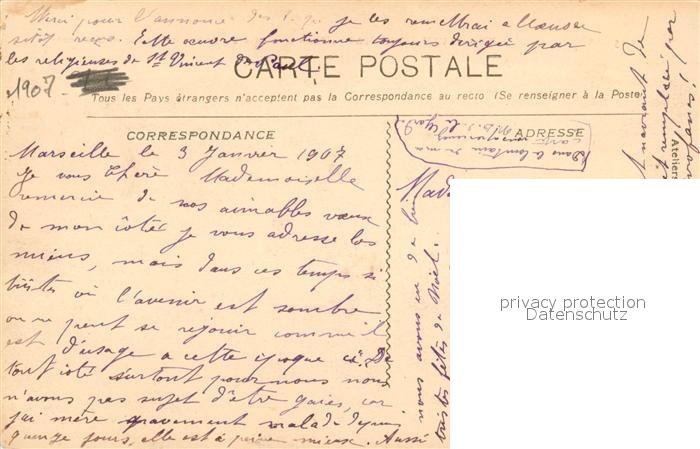 Merci pour l'annonce des je les remettrai
sitôt reçus. Cette œuvre fonctionne toujours dirigée par
les religieuses de St Vincent de Paul.
1907
CARTE POSTALE
Tous les Pays étrangers n'acceptent pas la Correspondance au recto (Se renseigner à la Poste
CORRESPONDANCE
ADRESSE
Marseille le 3 Janvier 1907
Je vous chère Mademoiselle
remercie de vos aimables vœux
de mon côté je vous adresse les
miens, mais dans ces temps si
tristes où l'avenir est sombre
on ne peut se rejouir comme il
est d'usage a cette époque ci. De
tout côté surtout pour nous nous
n'avons pas sujet d'être gaies, car
j'ai mère gravement malade depuis
quinze jours, elle est à peine mieux. Aussi
nous avons eu de bien
tristes fêtes de Noël.
Dans le lointain de ma
carte
N. D. de la Garde
Mad
et remplacé par
Ateliers
privacy protection
Datenschutz